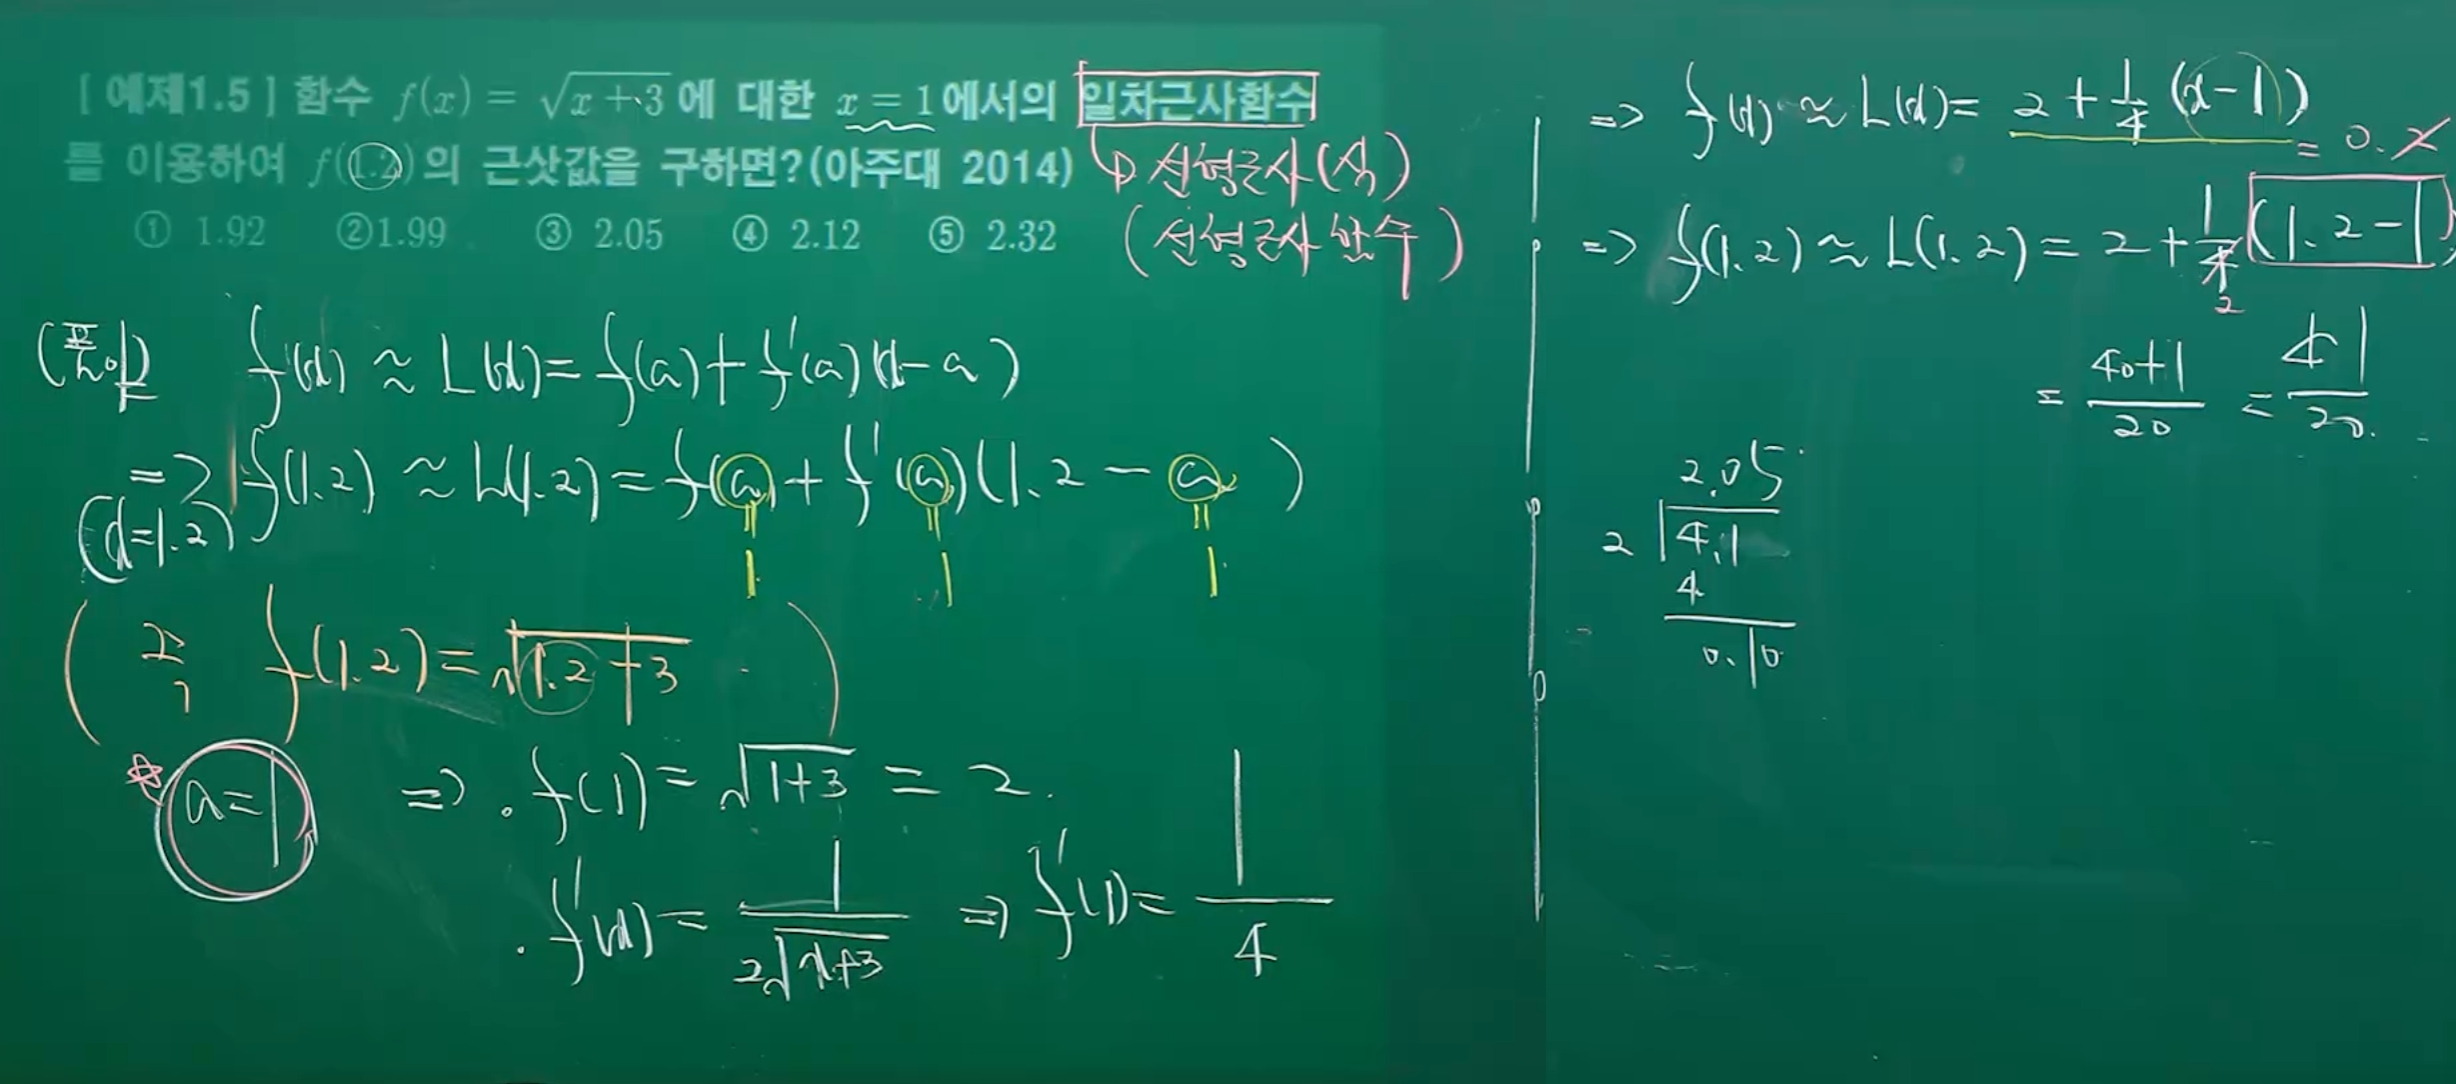 [ 예제1.5 ] 함수 f(x) = √(x+3) 에 대한 x = 1 에서의 일차근사함수
를 이용하여 f(1.2)의 근삿값을 구하면?(아주대 2014)
① 1.92 ②1.99 ③ 2.05 ④ 2.12 ⑤ 2.32
↳ 선형근사(식)
(선형근사함수)
(풀이) f(x) ≈ L(x) = f(a) + f'(a)(x-a)
=> f(1.2) ≈ L(1.2) = f(a) + f'(a)(1.2 - a)
(x=1.2)
|| || ||
1 1 1
f(1.2) = √(1.2+3)
☆ a=1 => · f(1) = √(1+3) = 2.
· f'(x) = 1/(2√(x+3)) => f'(1) = 1/4
=> f(x) ≈ L(x) = 2 + 1/4 (x-1)
= 0.2
=> f(1.2) ≈ L(1.2) = 2 + 1/4 (1.2-1)
2
= (40+1)/20 = 41/20
2.05
2 | 4.1
4
0.10